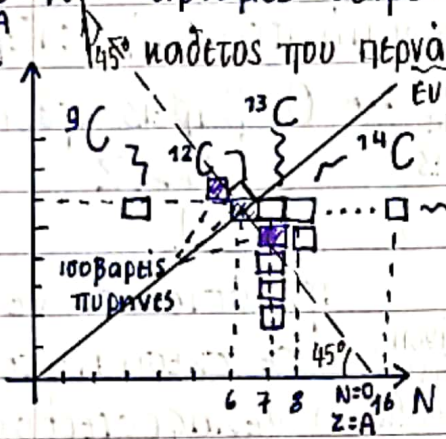 45° κάθετος που περνά
εν
⁹C
¹²C
¹³C
¹⁴C
ισοβαρείς
πυρήνες
45°
6 7 8 N=0 16 N
Z=A